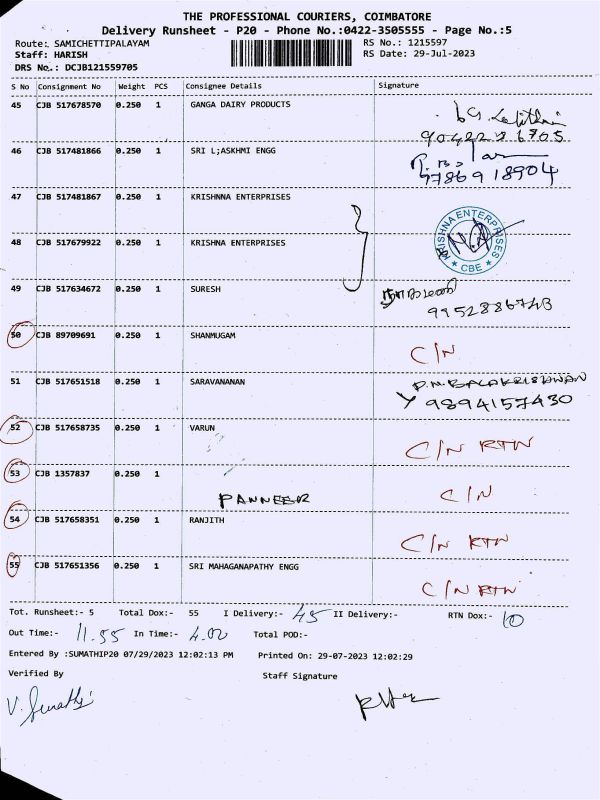 THE PROFESSIONAL COURIERS, COIMBATORE
Delivery Runsheet - P20 - Phone No.:0422-3505555 - Page No.:5
Route: SAMICHETTIPALAYAM RS No.: 1215597
Staff: HARISH RS Date: 29-Jul-2023
DRS No.: DCJB121559705
S No Consignment No Weight PCS Consignee Details Signature
45 CJB 517678570 0.250 1 GANGA DAIRY PRODUCTS
46 CJB 517481866 0.250 1 SRI L;ASKHMI ENGG
9786918904
47 CJB 517481867 0.250 1 KRISHNNA ENTERPRISES
48 CJB 517679922 0.250 1 KRISHNA ENTERPRISES
KRISHNA ENTERPRISES
★ CBE ★
49 CJB 517634672 0.250 1 SURESH
50 CJB 89709691 0.250 1 SHANMUGAM
C/N
51 CJB 517651518 0.250 1 SARAVANANAN
P.M. BALAKRISHNAN
9894157430
52 CJB 517658735 0.250 1 VARUN
C/N RTN
53 CJB 1357837 0.250 1
PANNEER C/N
54 CJB 517658351 0.250 1 RANJITH
C/N RTN
55 CJB 517651356 0.250 1 SRI MAHAGANAPATHY ENGG
C/N RTN
Tot. Runsheet:- 5 Total Dox:- 55 I Delivery:- 45 II Delivery:- RTN Dox:- 10
Out Time:- 11.55 In Time:- 4.00 Total POD:-
Entered By :SUMATHIP20 07/29/2023 12:02:13 PM Printed On: 29-07-2023 12:02:29
Verified By Staff Signature